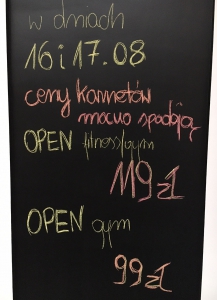 w dniach
16 i 17.08
ceny karnetów
mocno spadają
OPEN fitness/gym
119 zł
OPEN gym
99 zł